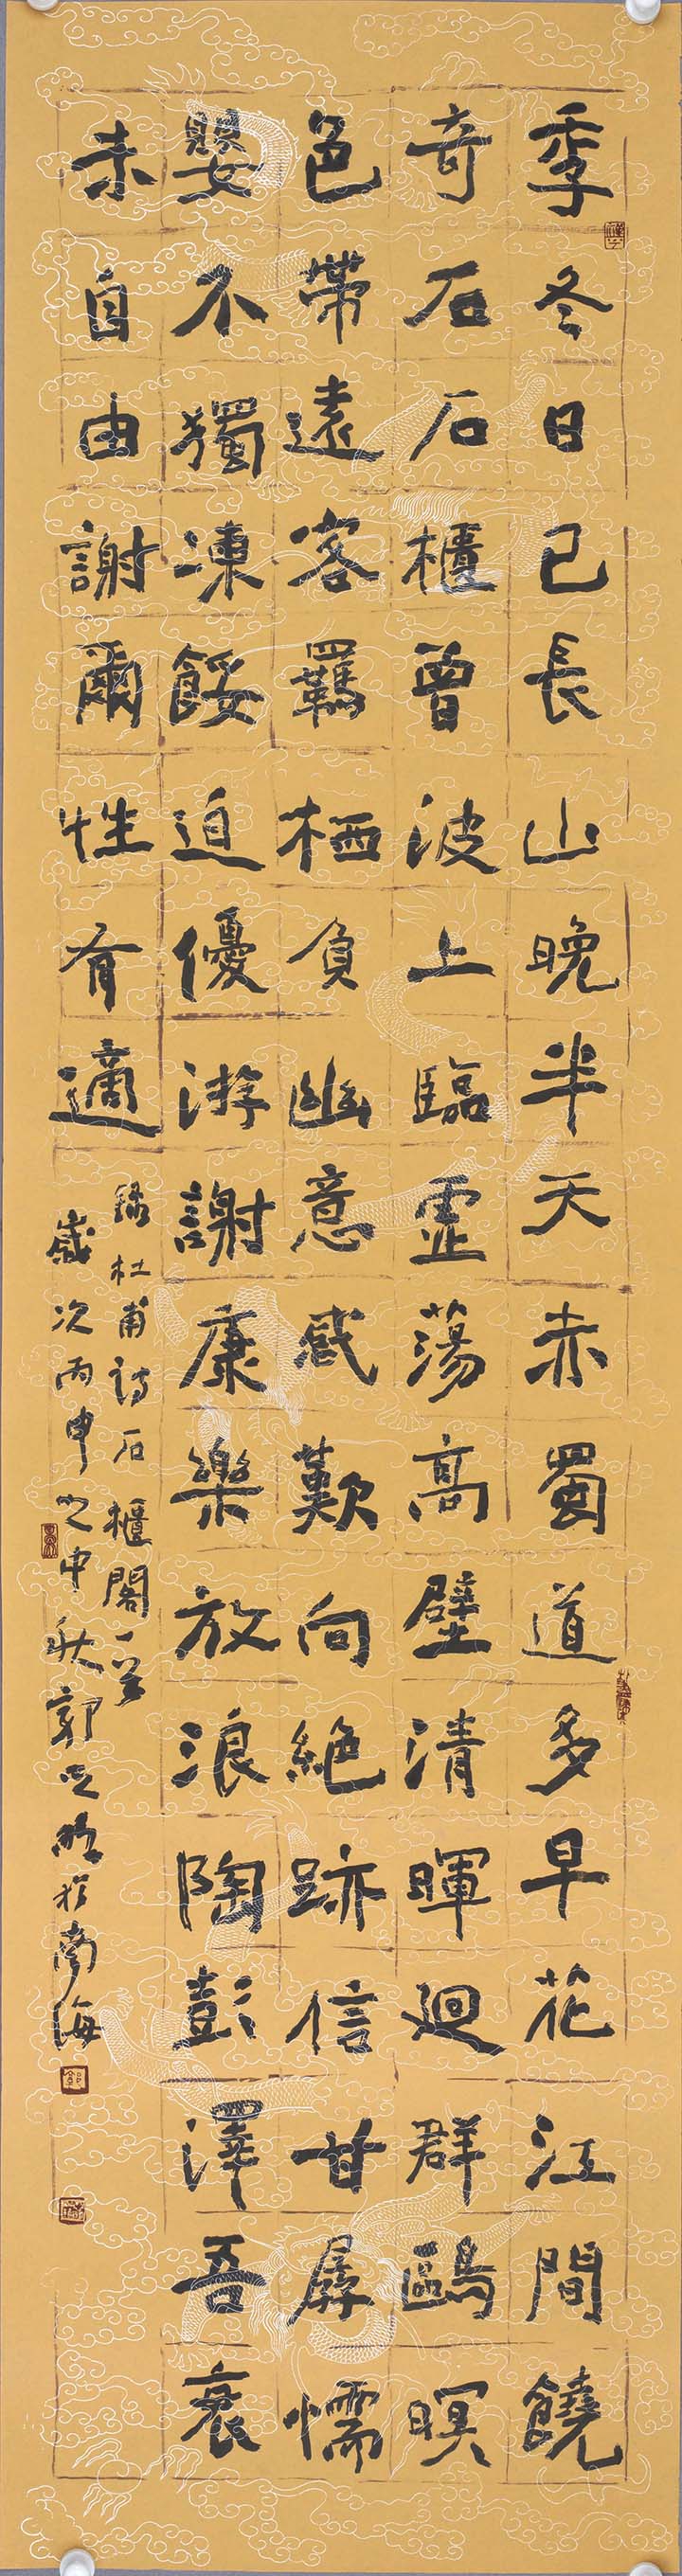 季冬日已長山晚半天赤蜀道多早花江間饒
奇石石櫃曾波上臨虛蕩高壁清暉廻群鷗暝
色帶遠客羈栖負幽意感歎向絶跡信甘孱懦
嬰不獨凍餒迫優游謝康樂放浪陶彭澤吾衰
未自由謝爾性有適
錄杜甫詩石櫃閣一首
歲次丙申之中秋郭於南海